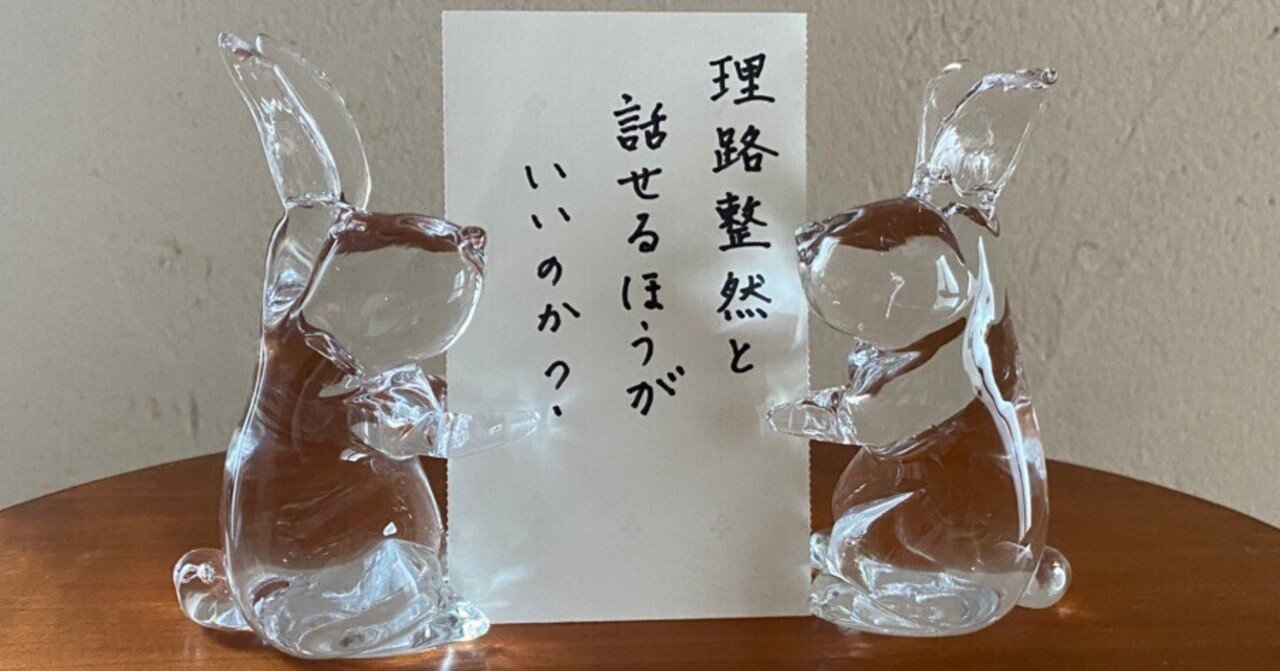 理路整然と
話せるほうが
いいのか？